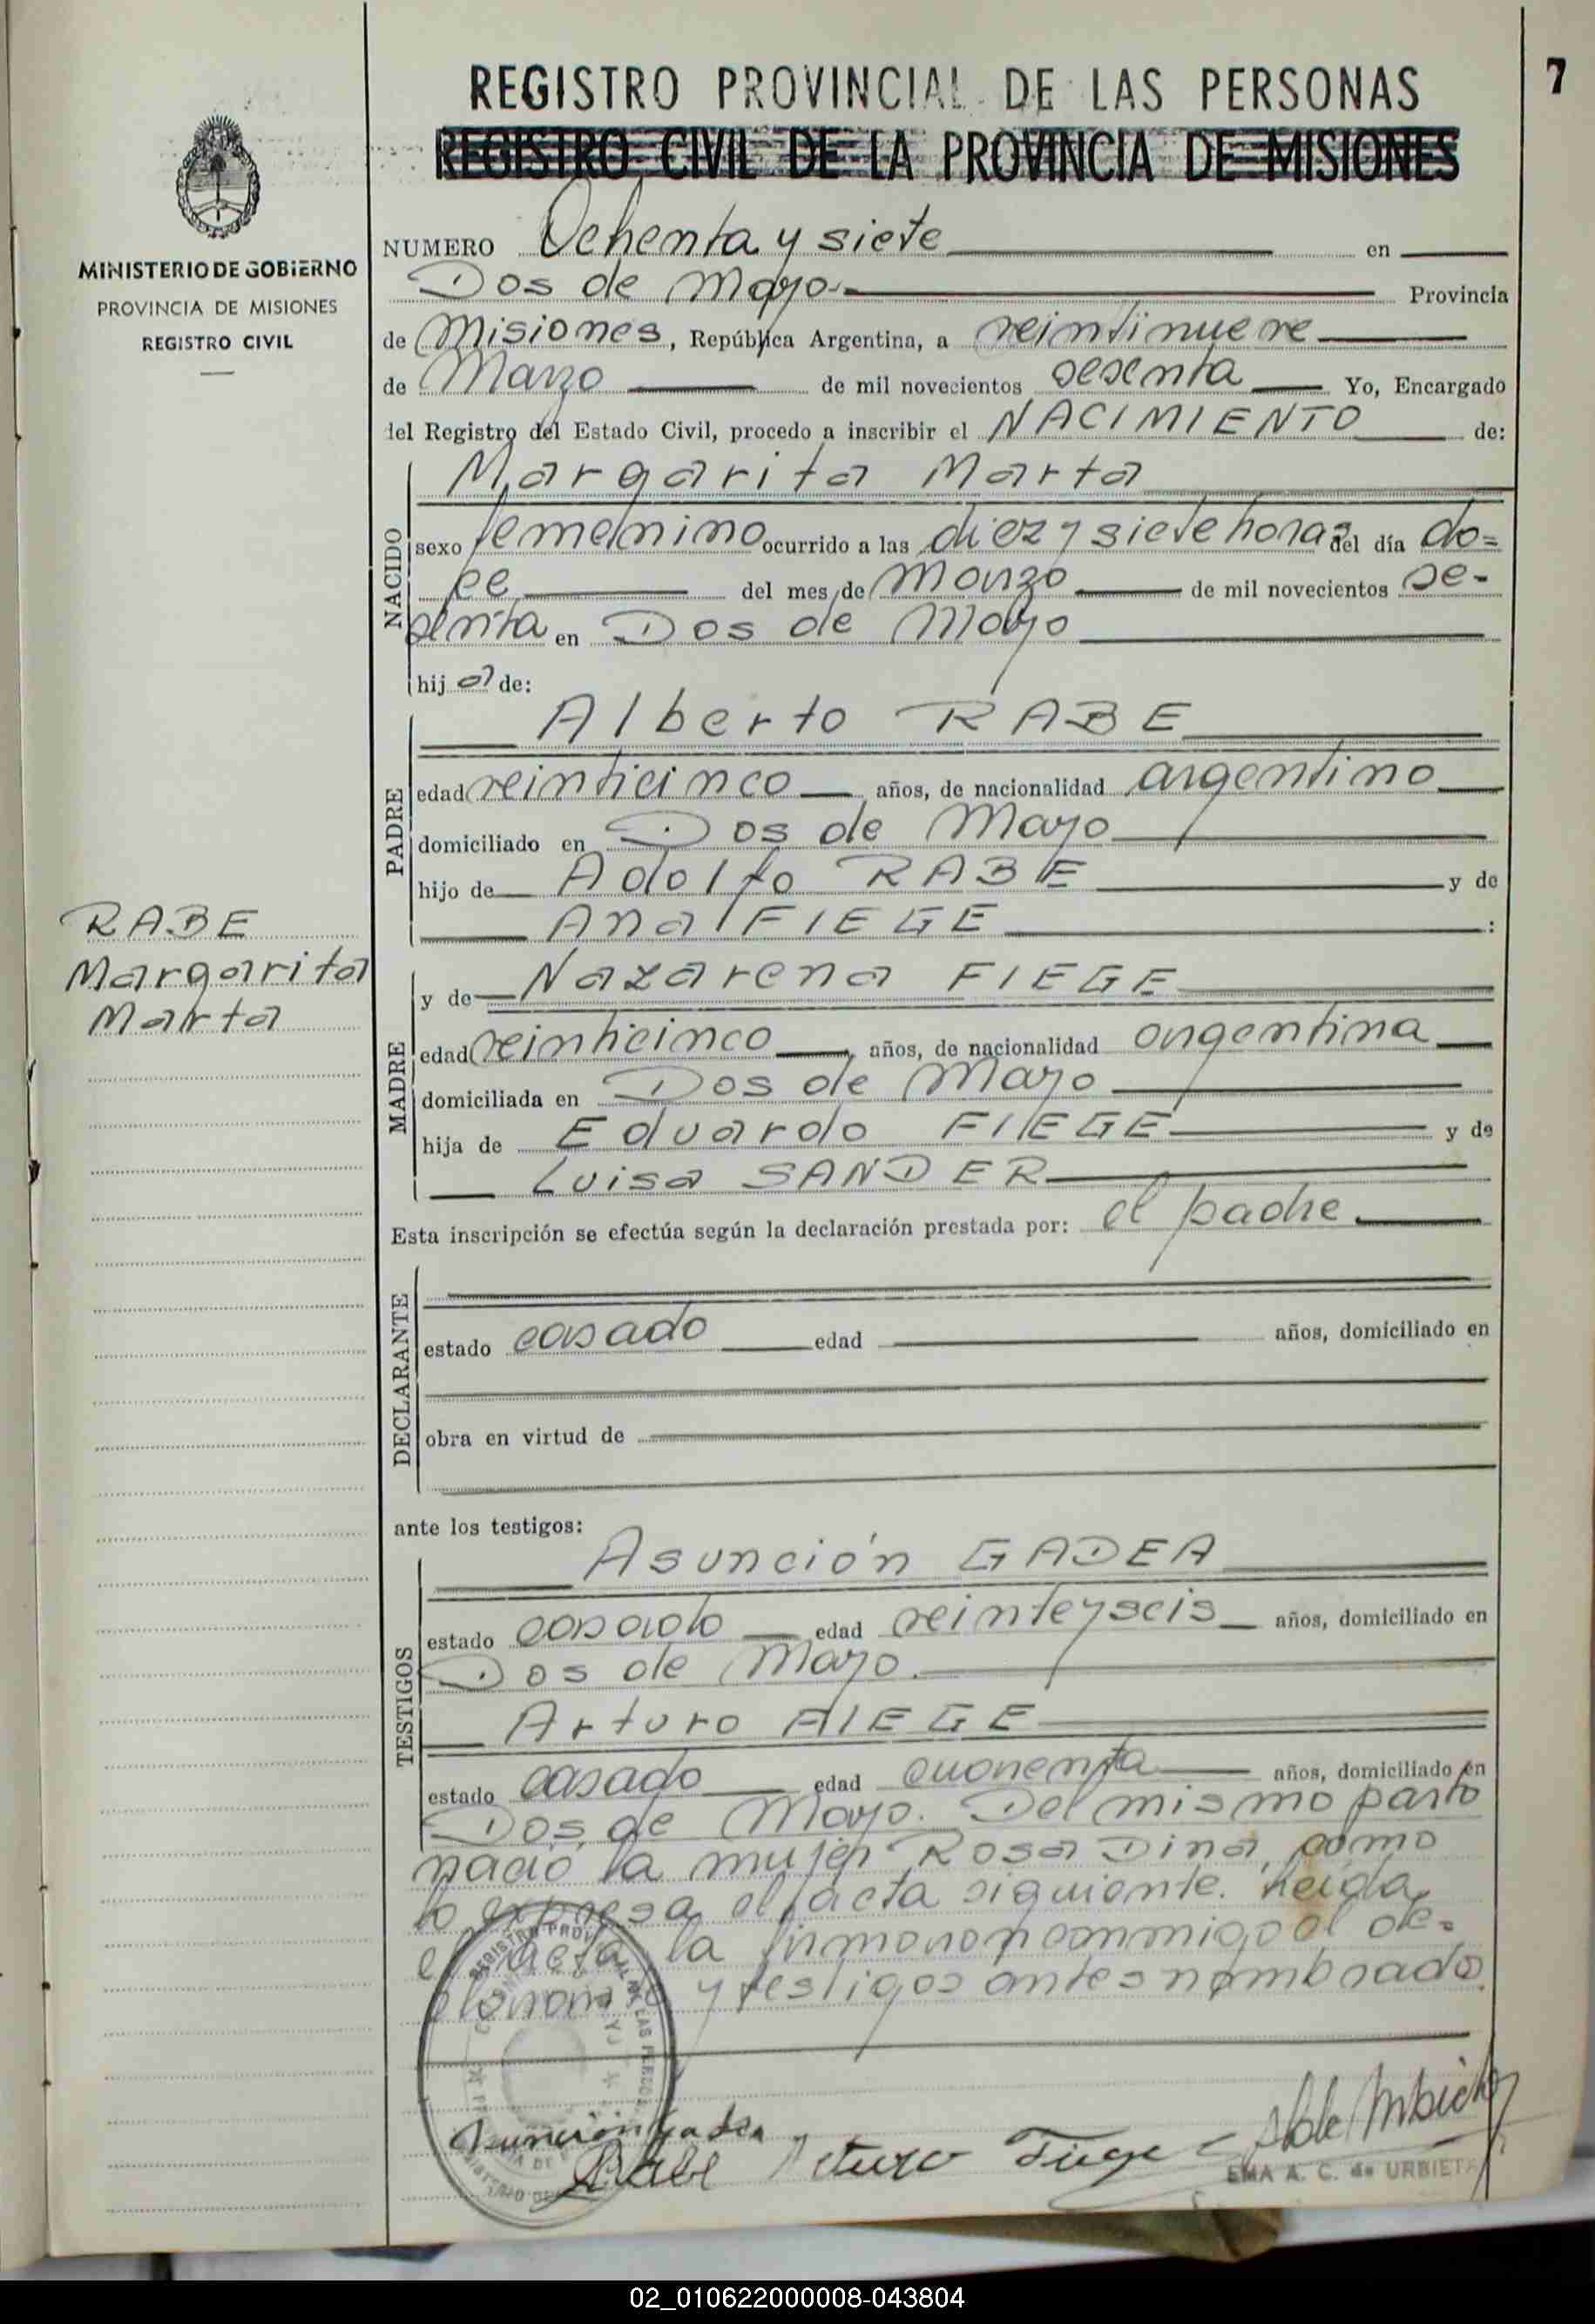 REGISTRO PROVINCIAL DE LAS PERSONAS
7
REGISTRO CIVIL DE LA PROVINCIA DE MISIONES
MINISTERIO DE GOBIERNO
PROVINCIA DE MISIONES
REGISTRO CIVIL
NUMERO Ochenta y siete en
Dos de Mayo Provincia
de Misiones, República Argentina, a veintinueve
de Marzo de mil novecientos sesenta Yo, Encargado
del Registro del Estado Civil, procedo a inscribir el NACIMIENTO de:
NACIDO
Margarita Marta
sexo femenino ocurrido a las diez y siete horas del día do=
ce del mes de Marzo de mil novecientos se-
senta en Dos de Mayo
hija de:
PADRE
Alberto RABE
edad veinticinco años, de nacionalidad argentino
domiciliado en Dos de Mayo
hijo de Adolfo RABE y de
Ana FIEGE :
RABE
Margarita
Marta
MADRE
y de Nazarena FIEGE
edad veinticinco años, de nacionalidad argentina
domiciliada en Dos de Mayo
hija de Eduardo FIEGE y de
Luisa SANDER
Esta inscripción se efectúa según la declaración prestada por: el padre
DECLARANTE
estado casado edad años, domiciliado en
obra en virtud de
ante los testigos:
TESTIGOS
Asunción GADEA
estado casado edad veinteyseis años, domiciliado en
Dos de Mayo.
Arturo FIEGE
estado casado edad cuarenta años, domiciliado en
Dos de Mayo. Del mismo parto
nació la mujer Rosa Dina, como
lo expresa el acta siguiente. Leida
el acta la firmaron conmigo el de-
clarante y testigos antes nombrados.
REGISTRO PROVINCIAL DE LAS PERSONAS
Asunción Gadea
Rabe Arturo Fiege
EMA A. C. de URBIETA
02_010622000008-043804